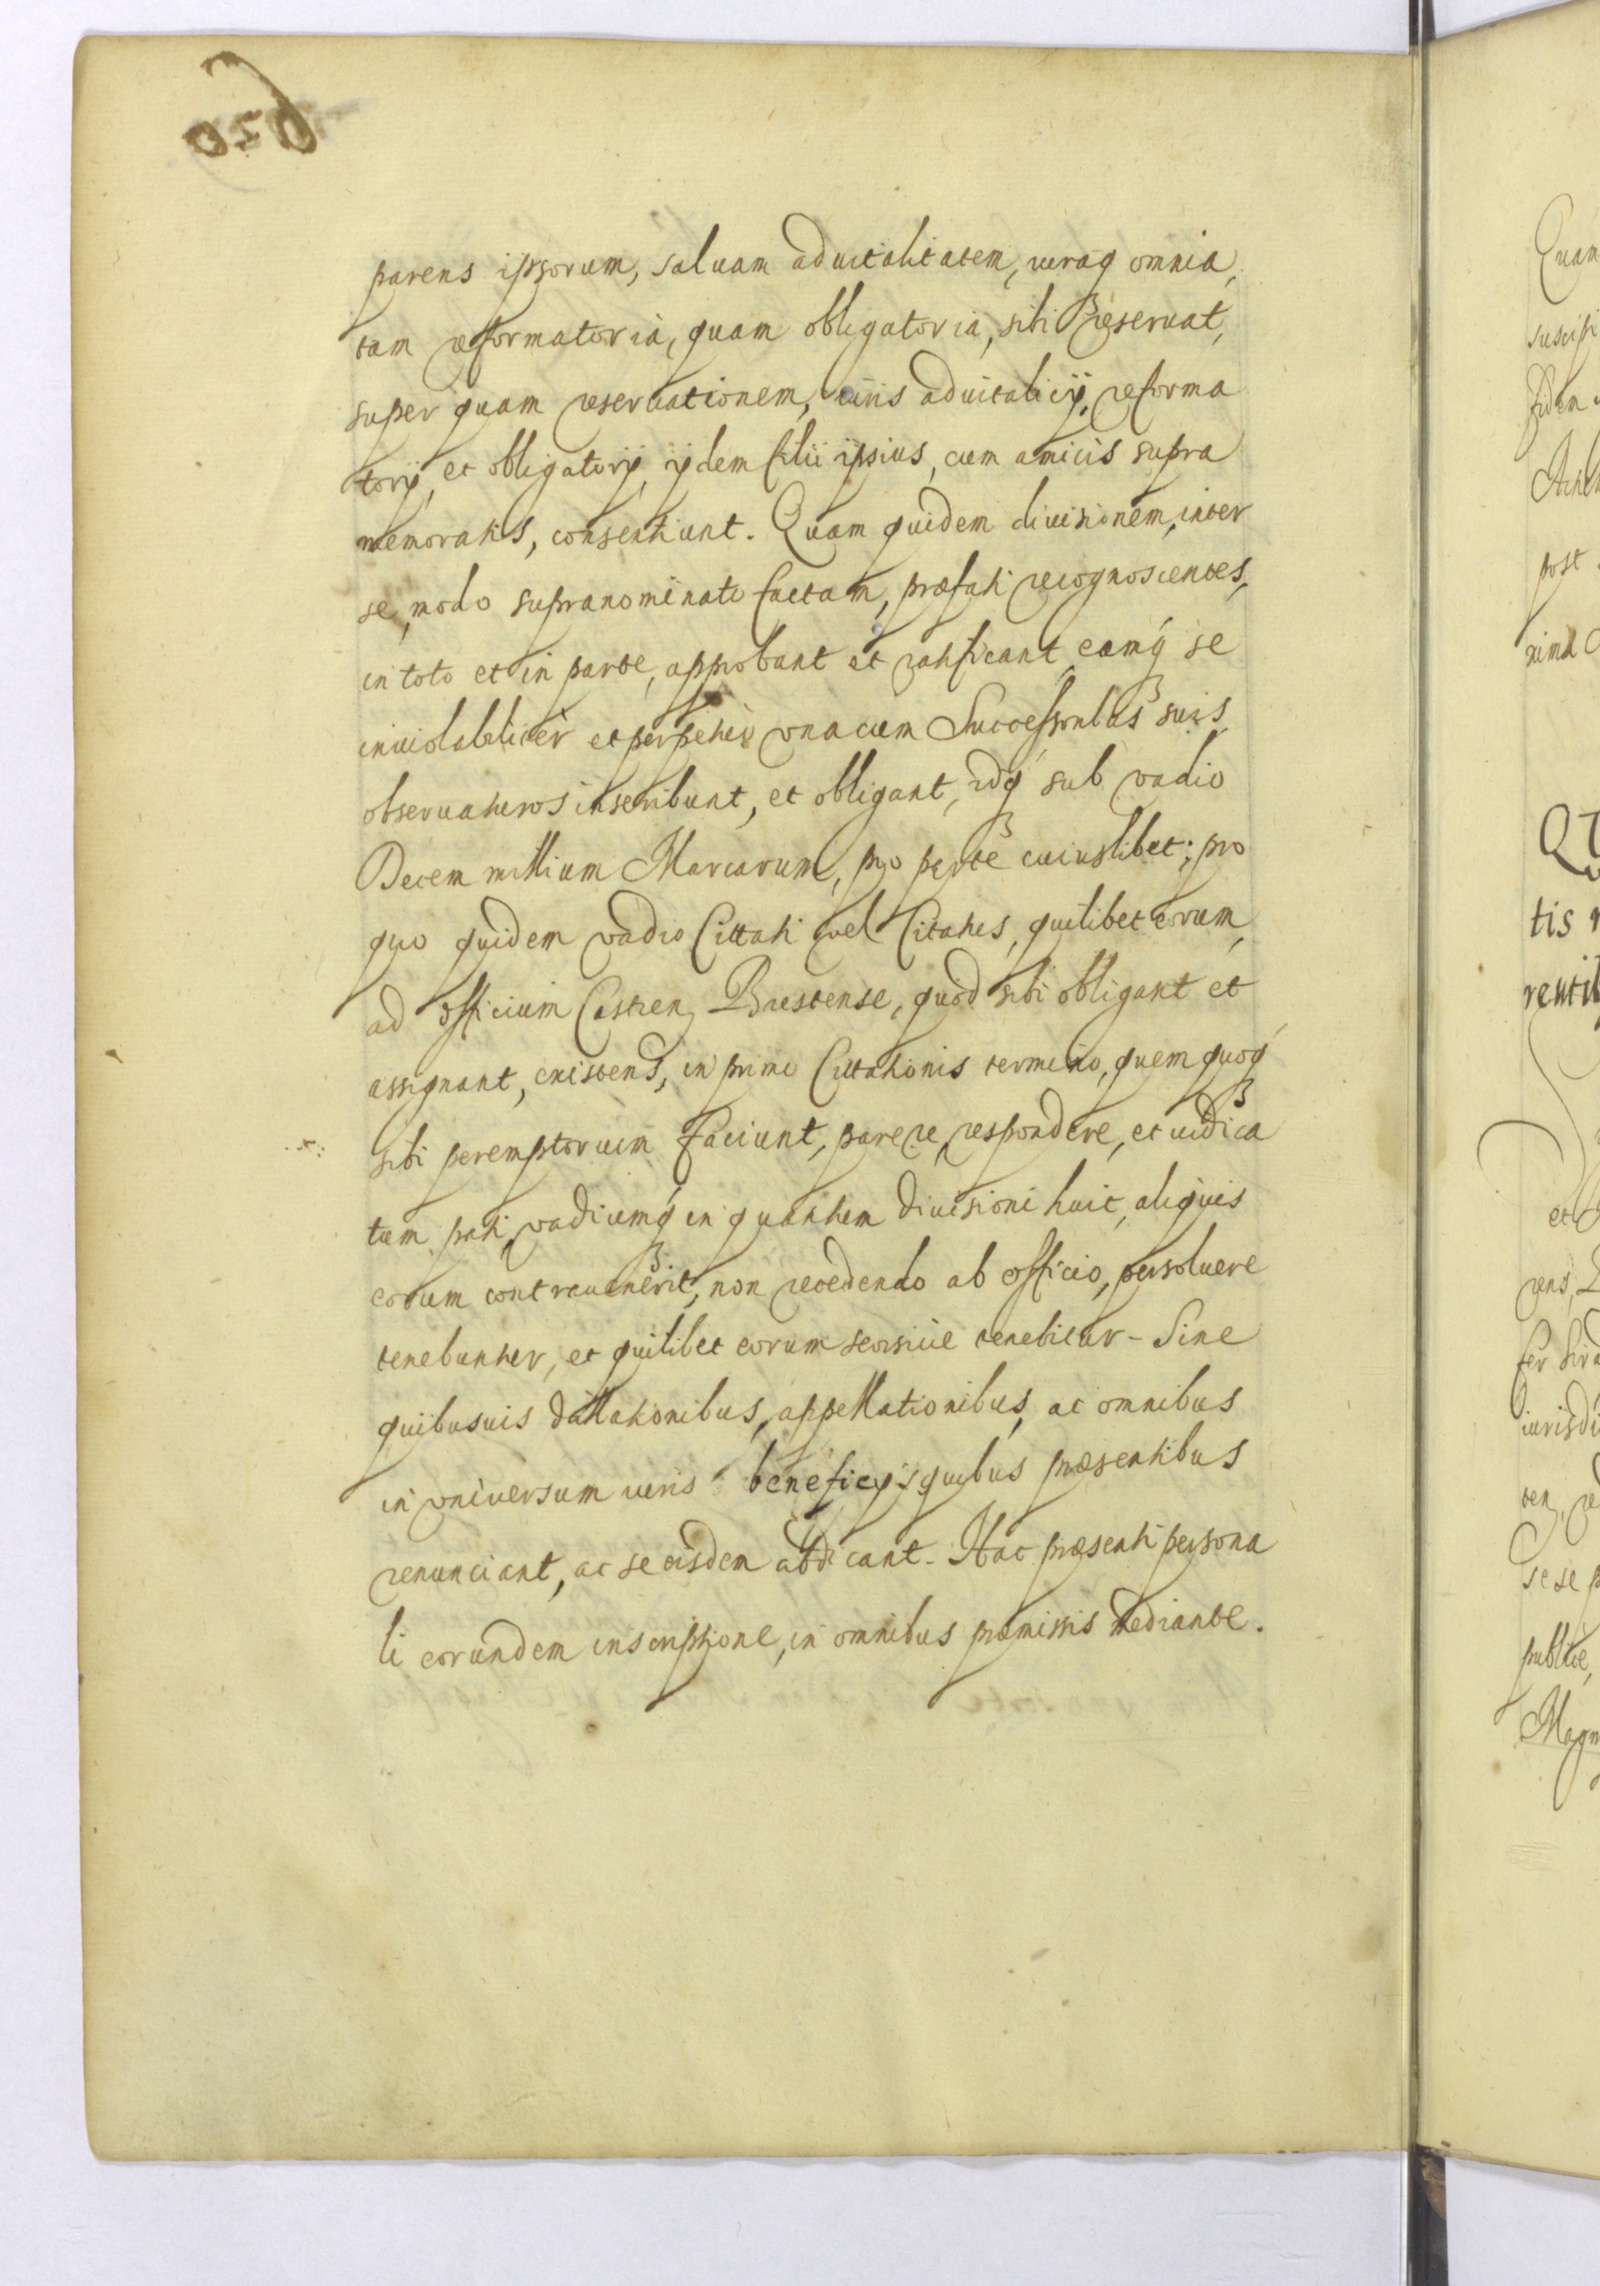 parens ipsorum, saluam aduitalitatem, iuraq3 omnia,
tam reformatoria, quam obligatoria, sibi reseruat,
super quam reseruationem, iuris aduitalicÿ, reforma
torÿ, et obligatorÿ, ÿdem filii ipsius, cum amicis supra
memoratis, consentiunt. Quam quidem diuisionem, inter
se, modo supranominato factam, præfati recognoscentes,
in toto et in parte, approbant et ratificant, eamq3 se
inuiolabiliter et perpetuo vna cum Successoribus suis
obseruaturos inscribunt, et obligant, idq3 sub vadio
Decem millium Marcarum, pro parte cuiuslibet; pro
quo quidem vadio Cittati vel Citatus, quilibet eorum,
ad officium Castren, Brestense, quod sibi obligant et
assignant, existens, in primo Cittationis termino, quem quoq3
sibi peremptorium faciunt, parere, respondere, et iudica
tum pati, vadiumq3 in quantum diuisioni huic, aliquis
eorum contrauenerit, non recedendo ab officio, persoluere
tenebuntur, et quilibet eorum seorsiue tenebitur - Sine
quibusuis dillationibus, appellationibus, ac omnibus
in vniuersum iuris beneficÿs, quibus præsentibus
renunciant, ac se eisdem abdicant. Hac præsenti persona
li eorundem inscriptione, in omnibus præmissis mediante.